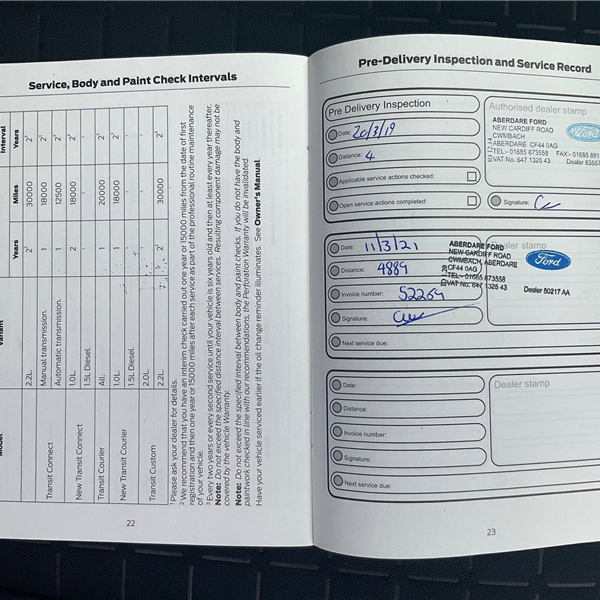 Service, Body and Paint Check Intervals
Model
Variant
Interval
Years
Miles
Years
2.2L.
2²
30000
2²
Transit Connect
Manual transmission.
1
18000
2²
Automatic transmission.
1
12500
2²
New Transit Connect
1.0L.
2
18000
2²
1.5L Diesel.
Transit Courier
All.
1
20000
2²
New Transit Courier
1.0L.
1
18000
2²
1.5L Diesel.
Transit Custom
2.0L.
2.2L.
2²
30000
2²
¹ Please ask your dealer for details.
² We recommend that you have an interim check carried out one year or 15000 miles from the date of first
registration and then one year or 15000 miles after each service as part of the professional routine maintenance
of your vehicle.
³ Every two years or every second service until your vehicle is six years old and then at least every year thereafter.
Note: Do not exceed the specified distance interval between services. Resulting component damage may not be
covered by the vehicle Warranty.
Note: Do not exceed the specified interval between body and paint checks. If you do not have the body and
paintwork checked in line with our recommendations, the Perforation Warranty will be invalidated.
Have your vehicle serviced earlier if the oil change reminder illuminates. See Owner's Manual.
22
Pre-Delivery Inspection and Service Record
Pre Delivery Inspection
Date: 20/3/19
Distance: 4
Applicable service actions checked:
Open service actions completed:
Authorised dealer stamp
ABERDARE FORD
NEW CARDIFF ROAD
CWMBACH
ABERDARE CF44 0AG
TEL:- 01685 873558 FAX:- 01685 881
VAT No. 647 1325 43 Dealer
Ford
Signature:
Date: 11/3/21
Distance: 4889
Invoice number: 52264
Signature:
Next service due:
Dealer stamp
ABERDARE FORD
NEW CARDIFF ROAD
CWMBACH, ABERDARE
CF44 0AG
TEL- 01685 873558
VAT No. 647 1325 43
Ford
Dealer 50217 AA
Date:
Distance:
Invoice number:
Signature:
Next service due:
Dealer stamp
23